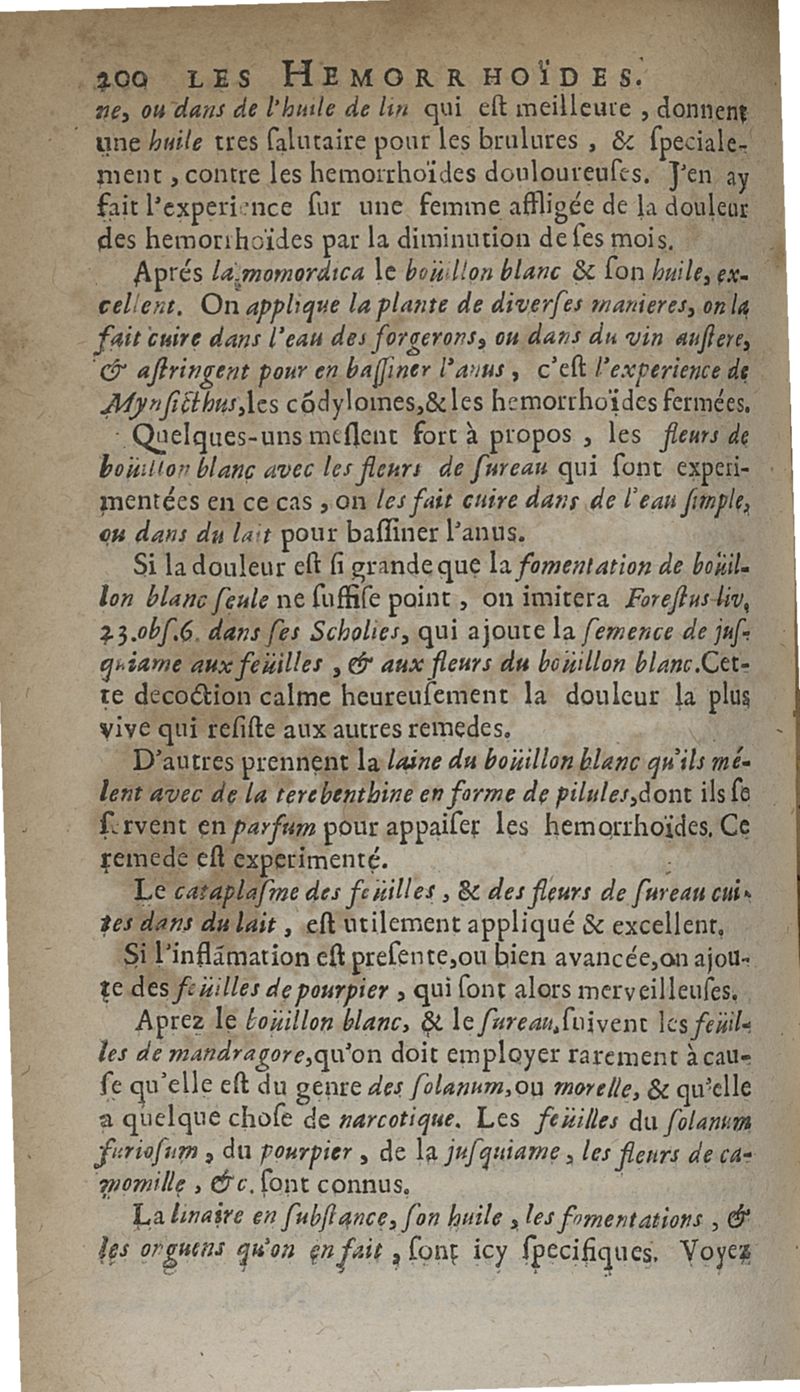 200 LES HEMORRHOÏDES.
ne, ou dans de l'huile de lin qui eſt meilleure , donnent
une huile tres ſalutaire pour les brulures , & ſpeciale-
ment , contre les hemorrhoïdes douloureuſes. J'en ay
fait l'experience ſur une femme affligée de la douleur
des hemorrhoïdes par la diminution de ſes mois.
Aprés la momordica le boüillon blanc & ſon huile, ex-
cellent. On applique la plante de diverſes manieres, on la
fait cuire dans l'eau des forgerons, ou dans du vin auſtere,
& aſtringent pour en baſſiner l'anus , c'eſt l'experience de
Mynſicthus,les cõdylomes,& les hemorrhoïdes fermées.
Quelques-uns meſlent fort à propos , les fleurs de
boüillon blanc avec les fleurs de ſureau qui ſont experi-
mentées en ce cas , on les fait cuire dans de l'eau ſimple,
ou dans du lait pour baſſiner l'anus.
Si la douleur eſt ſi grande que la fomentation de boüil-
lon blanc ſeule ne ſuffiſe point , on imitera Foreſtus liv.
23.obſ.6. dans ſes Scholies, qui ajoute la ſemence de juſ-
quiame aux feüilles , & aux fleurs du boüillon blanc.Cet-
te decoction calme heureuſement la douleur la plus
vive qui reſiſte aux autres remedes.
D'autres prennent la laine du boüillon blanc qu'ils mé-
lent avec de la terebenthine en forme de pilules,dont ils ſe
ſervent en parfum pour appaiſer les hemorrhoïdes. Ce
remede eſt experimenté.
Le cataplaſme des feüilles , & des fleurs de ſureau cui-
tes dans du lait , eſt utilement appliqué & excellent.
Si l'inflãmation eſt preſente,ou bien avancée,on ajou-
te des feüilles de pourpier , qui ſont alors merveilleuſes.
Aprez le boüillon blanc, & le ſureau,ſuivent les feüil-
les de mandragore,qu'on doit employer rarement à cau-
ſe qu'elle eſt du genre des ſolanum,ou morelle, & qu'elle
a quelque choſe de narcotique. Les feüilles du ſolanum
furioſum , du pourpier , de la juſquiame , les fleurs de ca-
momille , &c. ſont connus.
La linaire en ſubſtance, ſon huile , les fomentations , &
les onguens qu'on en fait , ſont icy ſpecifiques. Voyez